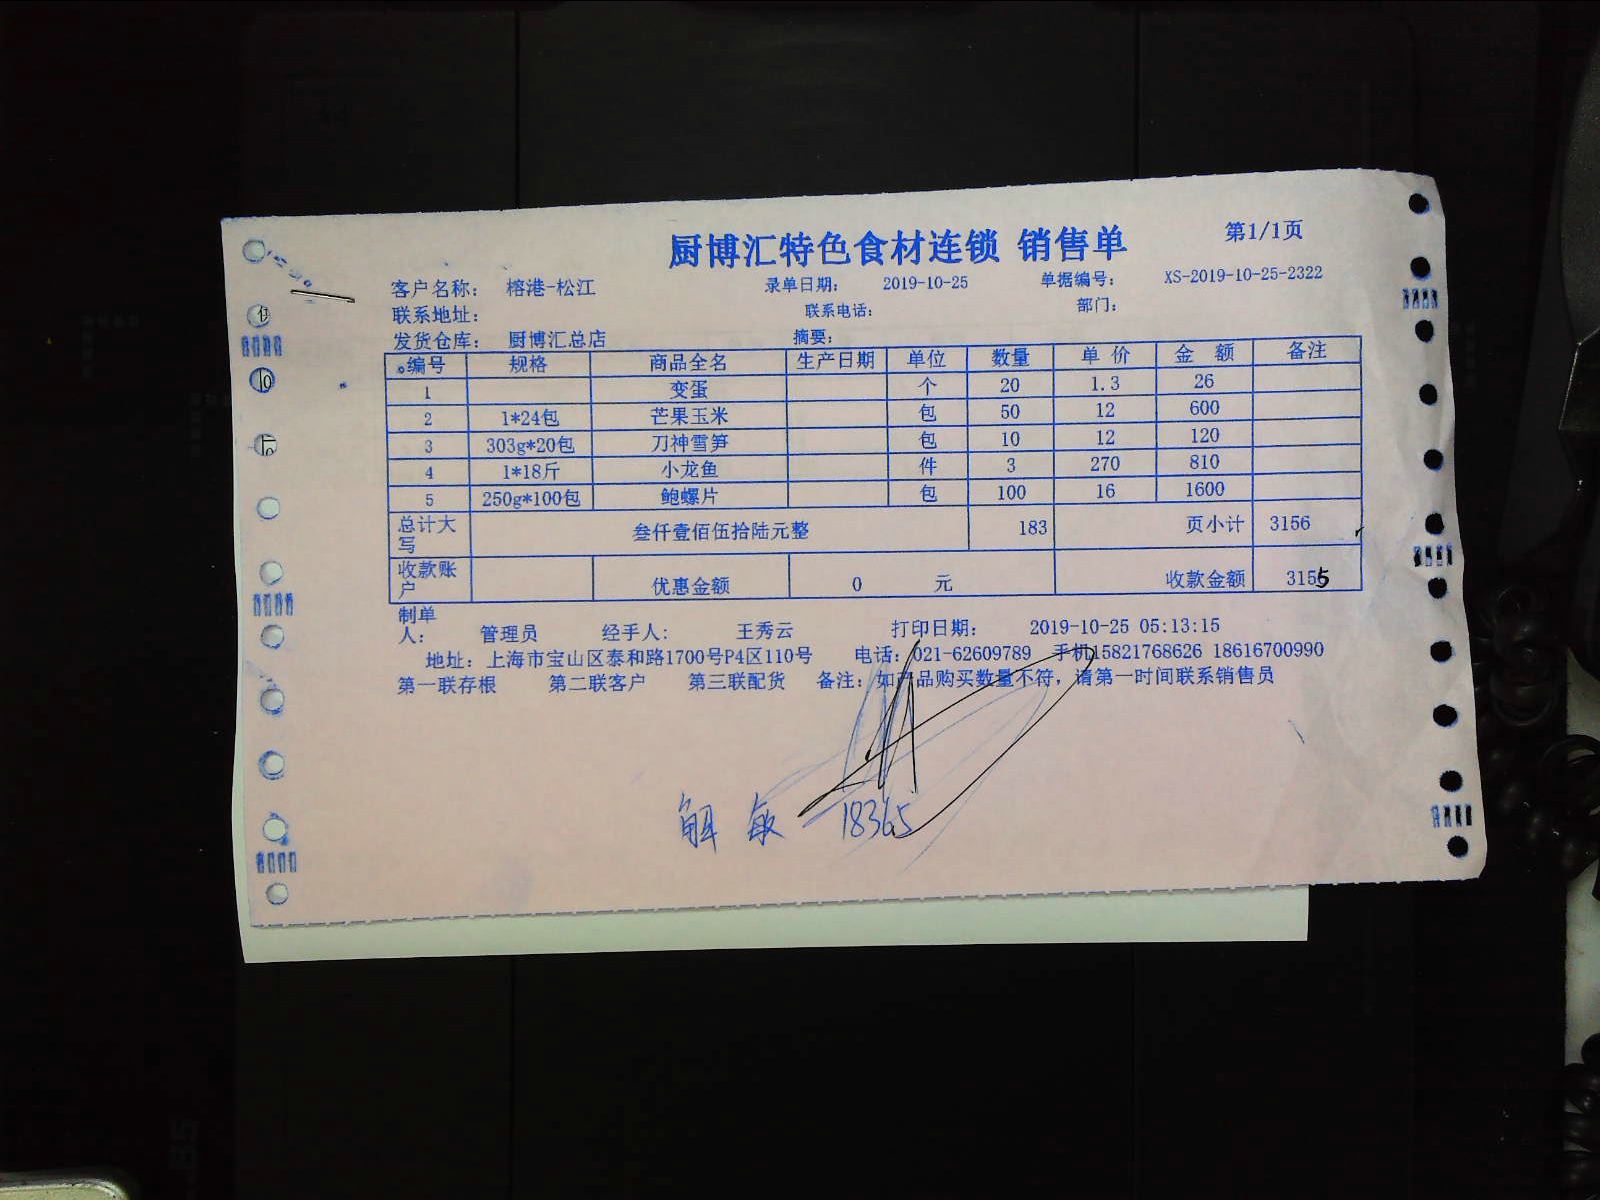 厨博汇特色食材连锁 销售单 第1/1页
客户名称: 榕港-松江 录单日期: 2019-10-25 单据编号: XS-2019-10-25-2322
联系地址: 联系电话: 部门:
发货仓库: 厨博汇总店 摘要:
编号 规格 商品全名 生产日期 单位 数量 单 价 金 额 备注
1 变蛋 个 20 1.3 26
2 1*24包 芒果玉米 包 50 12 600
3 303g*20包 刀神雪笋 包 10 12 120
4 1*18斤 小龙鱼 件 3 270 810
5 250g*100包 鲍螺片 包 100 16 1600
总计大写 叁仟壹佰伍拾陆元整 183 页小计 3156
收款账户 优惠金额 0 元 收款金额 3155
制单人: 管理员 经手人: 王秀云 打印日期: 2019-10-25 05:13:15
地址: 上海市宝山区泰和路1700号P4区110号 电话: 021-62609789 手机15821768626 18616700990
第一联存根 第二联客户 第三联配货 备注: 如产品购买数量不符, 请第一时间联系销售员
解敏 18365